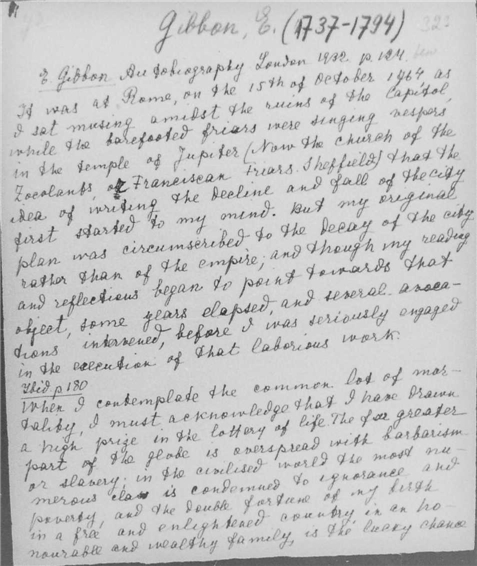 Gibbon, E. (1737-1794) 323
E. Gibbon Autobiography London 1932 p.124
It was at Rome, on the 15th of October 1464 as
I sat musing amidst the ruins of the Capitol,
while the barefooted friars were singing vespers
in the temple of Jupiter (Now the church of the
Zocolants, or Franciscan Friars. Sheffield) that the
idea of writing the decline and fall of the city
first started to my mind. But my original
plan was circumscribed to the decay of the city
rather than of the empire; and though my reading
and reflections began to point towards that
object, some years elapsed, and several avoca-
tions intervened, before I was seriously engaged
in the execution of that laborious work.
Ibid p180
When I contemplate the common lot of mor-
tality, I must acknowledge that I have drawn
a high prize in the lottery of life. The far greater
part of the globe is overspread with barbarism
or slavery; in the civilised world the most nu-
merous class is condemned to ignorance and
poverty, and the double fortune of my birth
in a free and enlightened country, in an ho-
nourable and wealthy family, is the lucky chance